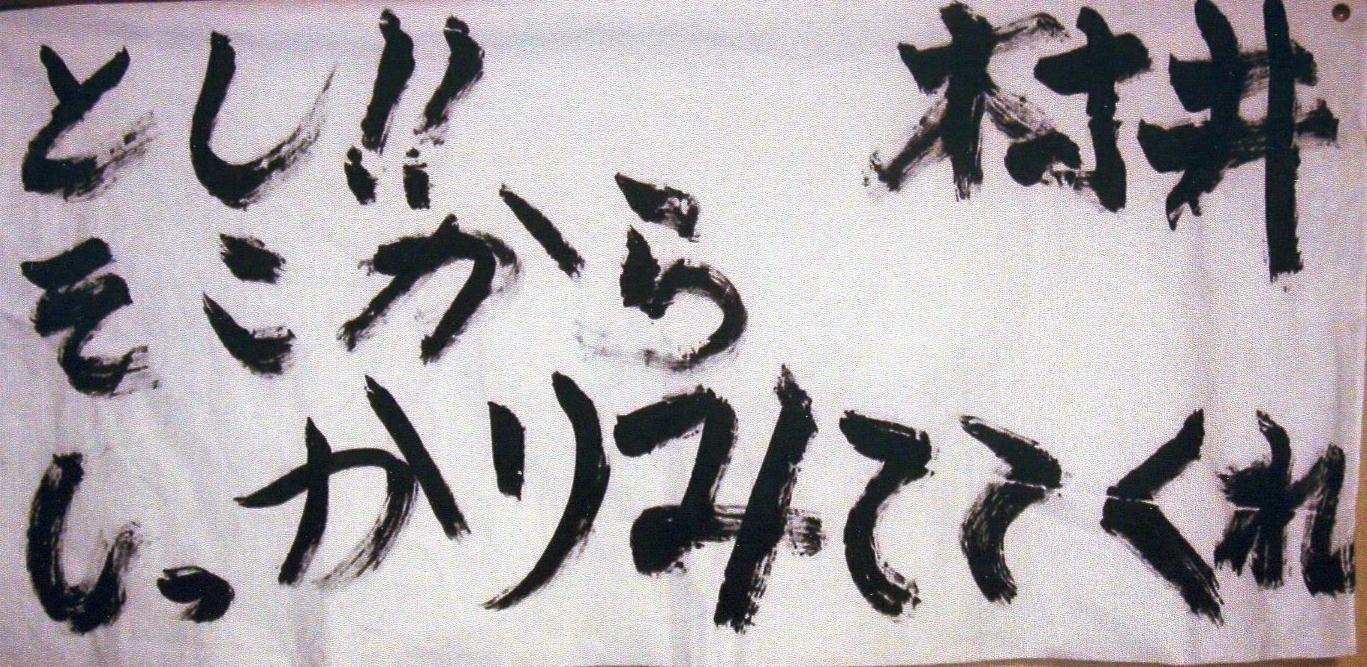 とし!! 村井
そこから
しっかりみててくれ